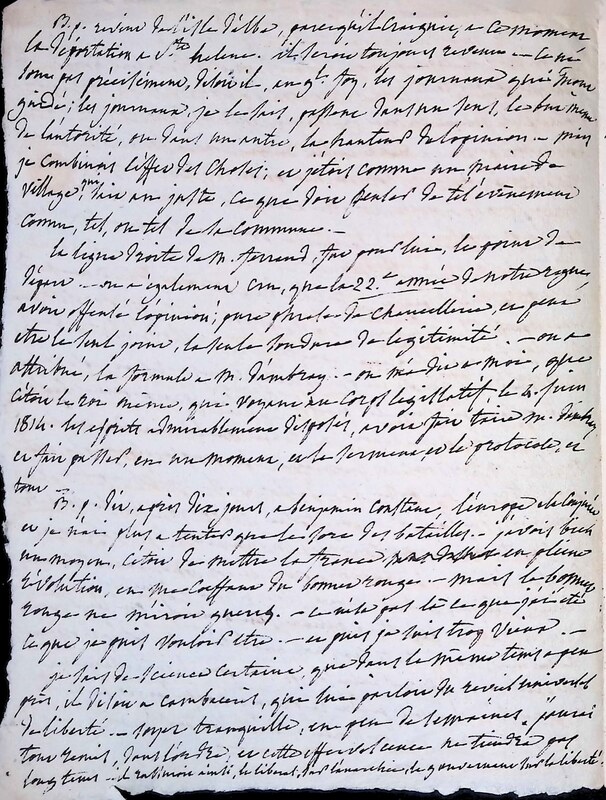 B. p. revine de l'isle d'elbe, parcequ'il craignit, a ce moment
la déportation a Ste helene. il seroit toujours revenu — ce ne
sont pas précisement, disoit il, au gl. foy, les journaux qui m'ont
guidé; les journaux, je le sais, passent dans un sens, le but même
de l'autorité, ou dans un autre, la hauteur de l'opinion — mais
je combinois l'effet des choses; et j'étois comme un maire de
village, qui sait au juste, ce que doit penser de tel évènement
comme, tel, ou tel de la commune. —
la ligne droite de M. ferrand, fut pour lui, le point de
départ. — on a également cru, que la 22.e année de notre regne,
avoit offensé l'opinion; pure phrase de chancellerie, et peut
etre le seul joint, la seule soudure de légitimité. — on a
attribué, la formule a M. dambray — on m'a dit a moi, que
c'étoit le roi même, qui voyant au corps législatif, le 4. juin
1814. les esprits admirablement disposés, avoit fait taire M. dambray
et fait passer, en un moment, et le serment, et le protocole, et
tout —
B. p. dit, après dix jours, a benjamin constant, l'europe est conjurée
et je n'ai plus a tenter que le sort des batailles. — j'avois bien
un moyen, c'étoit de mettre la france en pleine
révolution, en me coiffant du bonnet rouge. — mais le bonnet
rouge ne m'iroit gueres. — ce n'est pas là ce que j'ai été
ce que je puis vouloir etre. — et puis je suis trop vieux. —
je sais de science certaine, que dans le même tems a peu
près, il disoit a cambaceres, qui lui parloit du reveil universel
de liberté. — soyez tranquille, en peu de semaines, j'aurai
tout remis, dans l'ordre, et cette effervescence ne tiendra pas
longtems — il estimoit ainsi, le liberal, par l'anarchie, le gouvernement par la liberté.